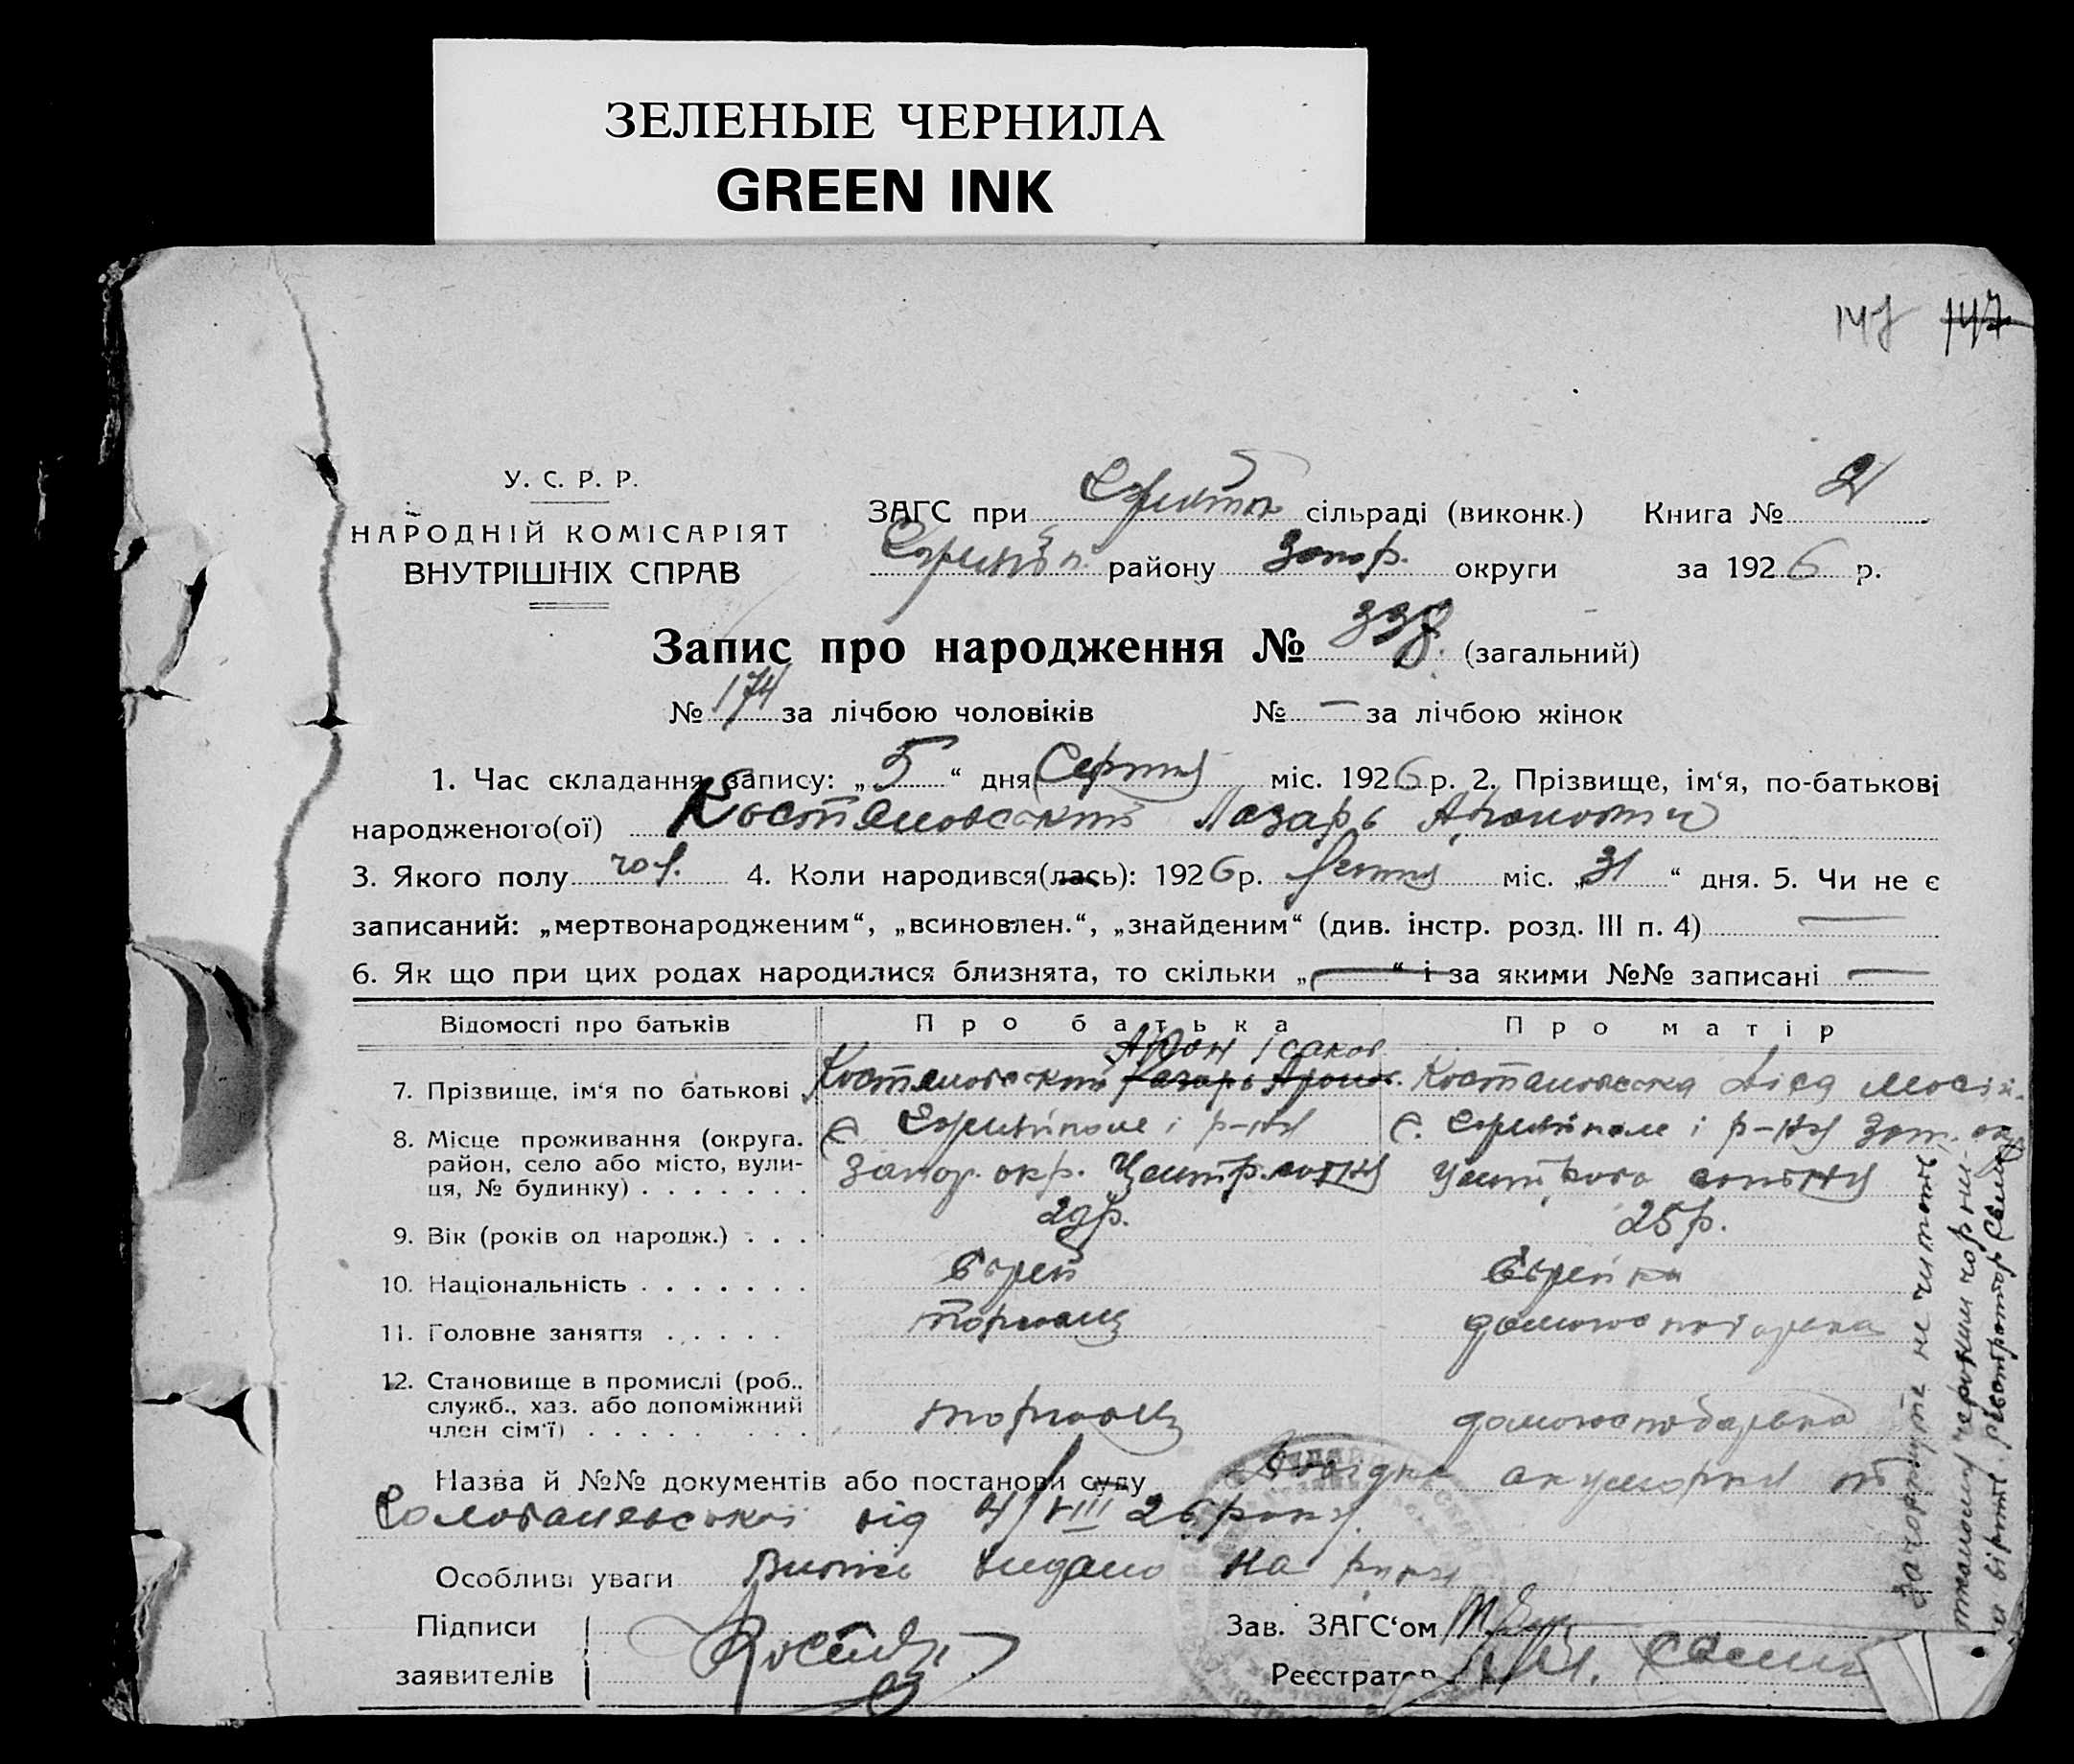 ЗЕЛЕНЫЕ ЧЕРНИЛА
GREEN INK
147
У. С. Р. Р.
НАРОДНІЙ КОМІСАРІЯТ
ВНУТРІШНІХ СПРАВ
ЗАГС при сільраді (виконк.) Книга № 2
району Запор. округи за 1926 р.
Запис про народження № 338. (загальний)
№ 174 за лічбою чоловіків № — за лічбою жінок
1. Час складання запису: „5“ дня Серпня міс. 1926 р. 2. Прізвище, ім‘я, по-батькові
народженого(ої) Костяновський Лазарь Аронович
3. Якого полу чол. 4. Коли народився(лась): 1926 р. Липня міс. „31“ дня. 5. Чи не є
записаний: „мертвонародженим“, „всиновлен.“, „знайденим“ (див. інстр. розд. III п. 4) —
6. Як що при цих родах народилися близнята, то скільки „—“ і за якими №№ записані —
Відомості про батьків Про батька Про матір
Арон Ісаков.
7. Прізвище, ім‘я по батькові Костяновський Лазарь Аронов. Костяновска Ліса Мосій.
8. Місце проживання (округа, район, село або місто, вулиця, № будинку) с. і р-ну Запор. окр. Центр. сотня с. і р-ну Зап. окр. Центрова сотня
9. Вік (років од народж.) 29 р. 25 р.
10. Національність Єврей Єврейка
11. Головне заняття торговец домогосподарька
12. Становище в промислі (роб., служб., хаз. або допоміжний член сім‘ї) торговец домогосподарька
Назва й №№ документів або постанови суду Довідка акушорки
від 4/VIII 26 року.
Особливі уваги Витяг видано на руки
Підписи
заявителів
Зав. ЗАГС‘ом
Реєстратор
закорпуте не читать
написаному черними чорни-
ми вірить. рівстратор